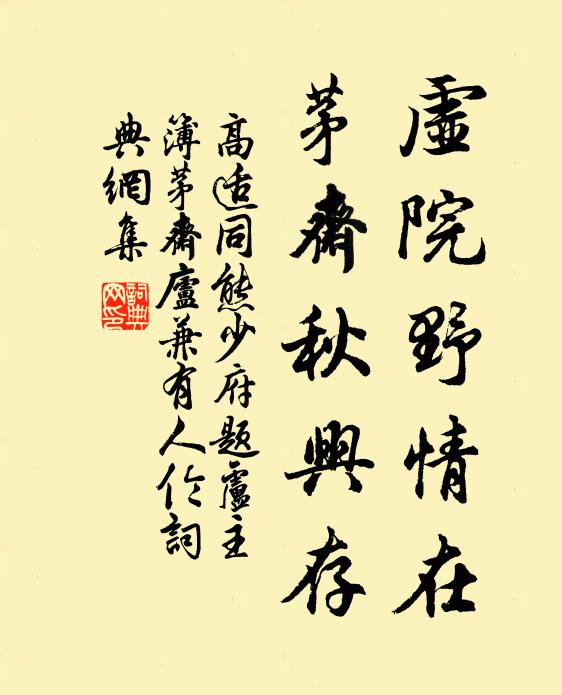 虛院野情在
茅齋秋興存
高适同熊少府題盧主
簿茅齋廬兼有人伦詞
典網集
詞典
网印